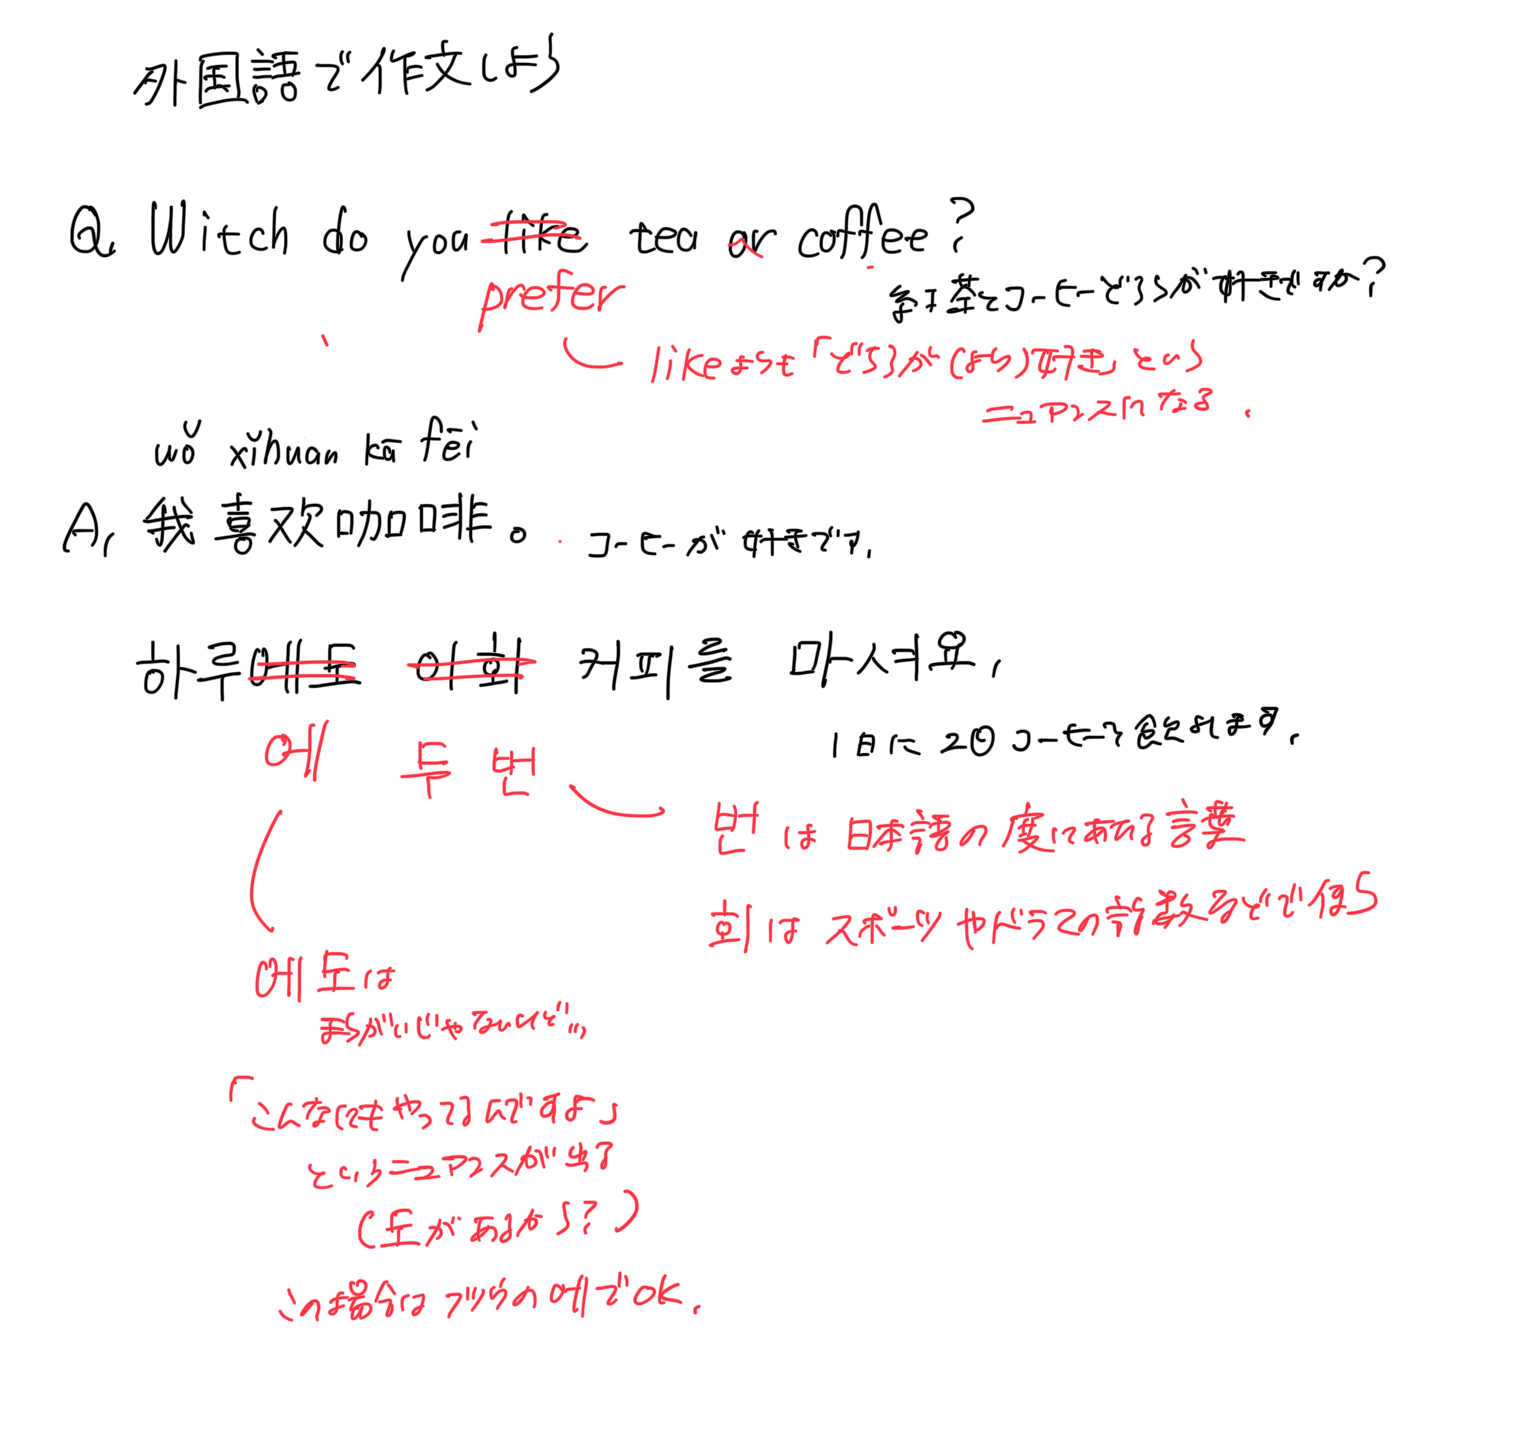 外国語で作文しよう
Q. Witch do you like tea or coffee?
prefer
紅茶とコーヒーどちらが好きですか?
likeよりも「どちらが(より)好き」という
ニュアンスになる.
wǒ xǐhuan kā fēi
A. 我喜欢咖啡。
コーヒーが好きです.
하루에도 이회 커피를 마셔요.
에 두 번
1日に2回コーヒーを飲みます.
번は日本語の度にあたる言葉
회はスポーツやドラマの話数などで使う
에도は
まちがいじゃないけど…
「こんなにもやってるんですよ」
というニュアンスが出る
(도があるから?)
この場合はフツウの에でOK.